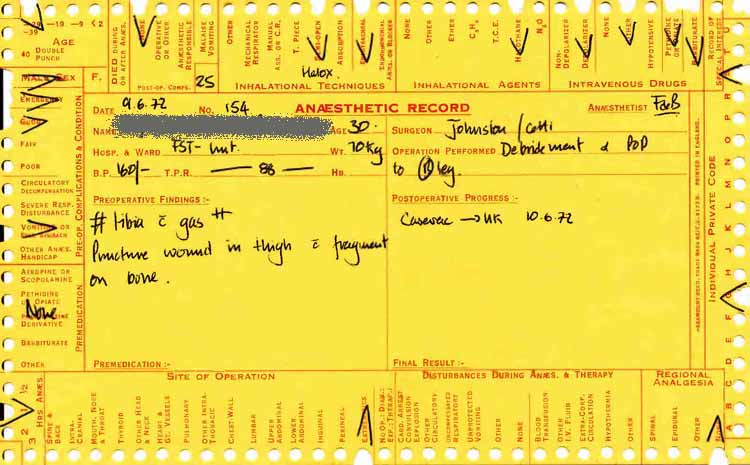 -39 -29 -19 -9 < 2
40 AGE DOUBLE PUNCH
MALE SEX F.
DIED DURING OR AFTER ANÆS.
NONE
OPERATIVE OR OTHER
ANÆSTHETIC RESPONSIBLE
MALAISE VOMITING
OTHER
MECHANICAL RESPIRATOR
MANUAL ASS. OR C.R.
T. PIECE
SEMI-OPEN
ABSORPTION
NONE
OTHER
ETHER
C₃H₆
T.C.E.
HALOTHANE
N₂O
NON-DEPOLARIZER
DEPOLARIZER
NONE
OTHER
HYPOTENSIVE
PETHIDINE OR OPIATE
BARBITURATE
RECORD OF SPECIAL INTEREST
POST-OP. COMPS. 25
Halox.
INHALATIONAL TECHNIQUES
INHALATIONAL AGENTS
INTRAVENOUS DRUGS
EMERGENCY
GOOD
FAIR
POOR
CIRCULATORY DECOMPENSATION
SEVERE RESP. DISTURBANCE
VOMITING OR FULL STOMACH
OTHER ANÆS. HANDICAP
PRE-OP. COMPLICATIONS & CONDITION
ATROPINE OR SCOPOLAMINE
PETHIDINE OR OPIATE
None
DERIVATIVE
BARBITURATE
OTHER
PREMEDICATION
DATE 9.6.72 NO. 154 ANÆSTHETIC RECORD ANÆSTHETIST
NAME AGE 30. SURGEON Johnston /
HOSP. & WARD FST- unit. WT. 70kg OPERATION PERFORMED Debridement & POP
B.P. 160/- T.P.R. — 88 — HB. to Ⓡ leg.
PREOPERATIVE FINDINGS :-
# tibia c̄ gas #
Puncture wound in thigh c̄ fragment
on bone.
PREMEDICATION :-
POSTOPERATIVE PROGRESS :-
Casevac → UK 10.6.72
FINAL RESULT :-
INDIVIDUAL PRIVATE CODE
PRINTED IN ENGLAND.
HRS ANÆS.
3 2 1 ½
SITE OF OPERATION
SPINE & BACK
EXTRA-CRANIAL
MOUTH, NOSE & THROAT
THYROID
OTHER HEAD & NECK
HEART & GT. VESSELS
PULMONARY
OTHER INTRA-THORACIC
CHEST-WALL
LUMBAR
UPPER ABDOMINAL
LOWER ABDOMINAL
INGUINAL
PERINEAL
EXTREMITIES
DISTURBANCES DURING ANÆS. & THERAPY
CARD. ARREST CONVULSION EXPLOSION
OTHER CIRCULATORY
UNSUPPRESSED RESPIRATORY
UNPROTECTED VOMITING
OTHER
NONE
BLOOD TRANSFUSION
OTHER I.V. FLUID
EXTRA-CORP. CIRCULATION
HYPOTHERMIA
OTHER
REGIONAL ANALGESIA
SPINAL
EPIDURAL
OTHER